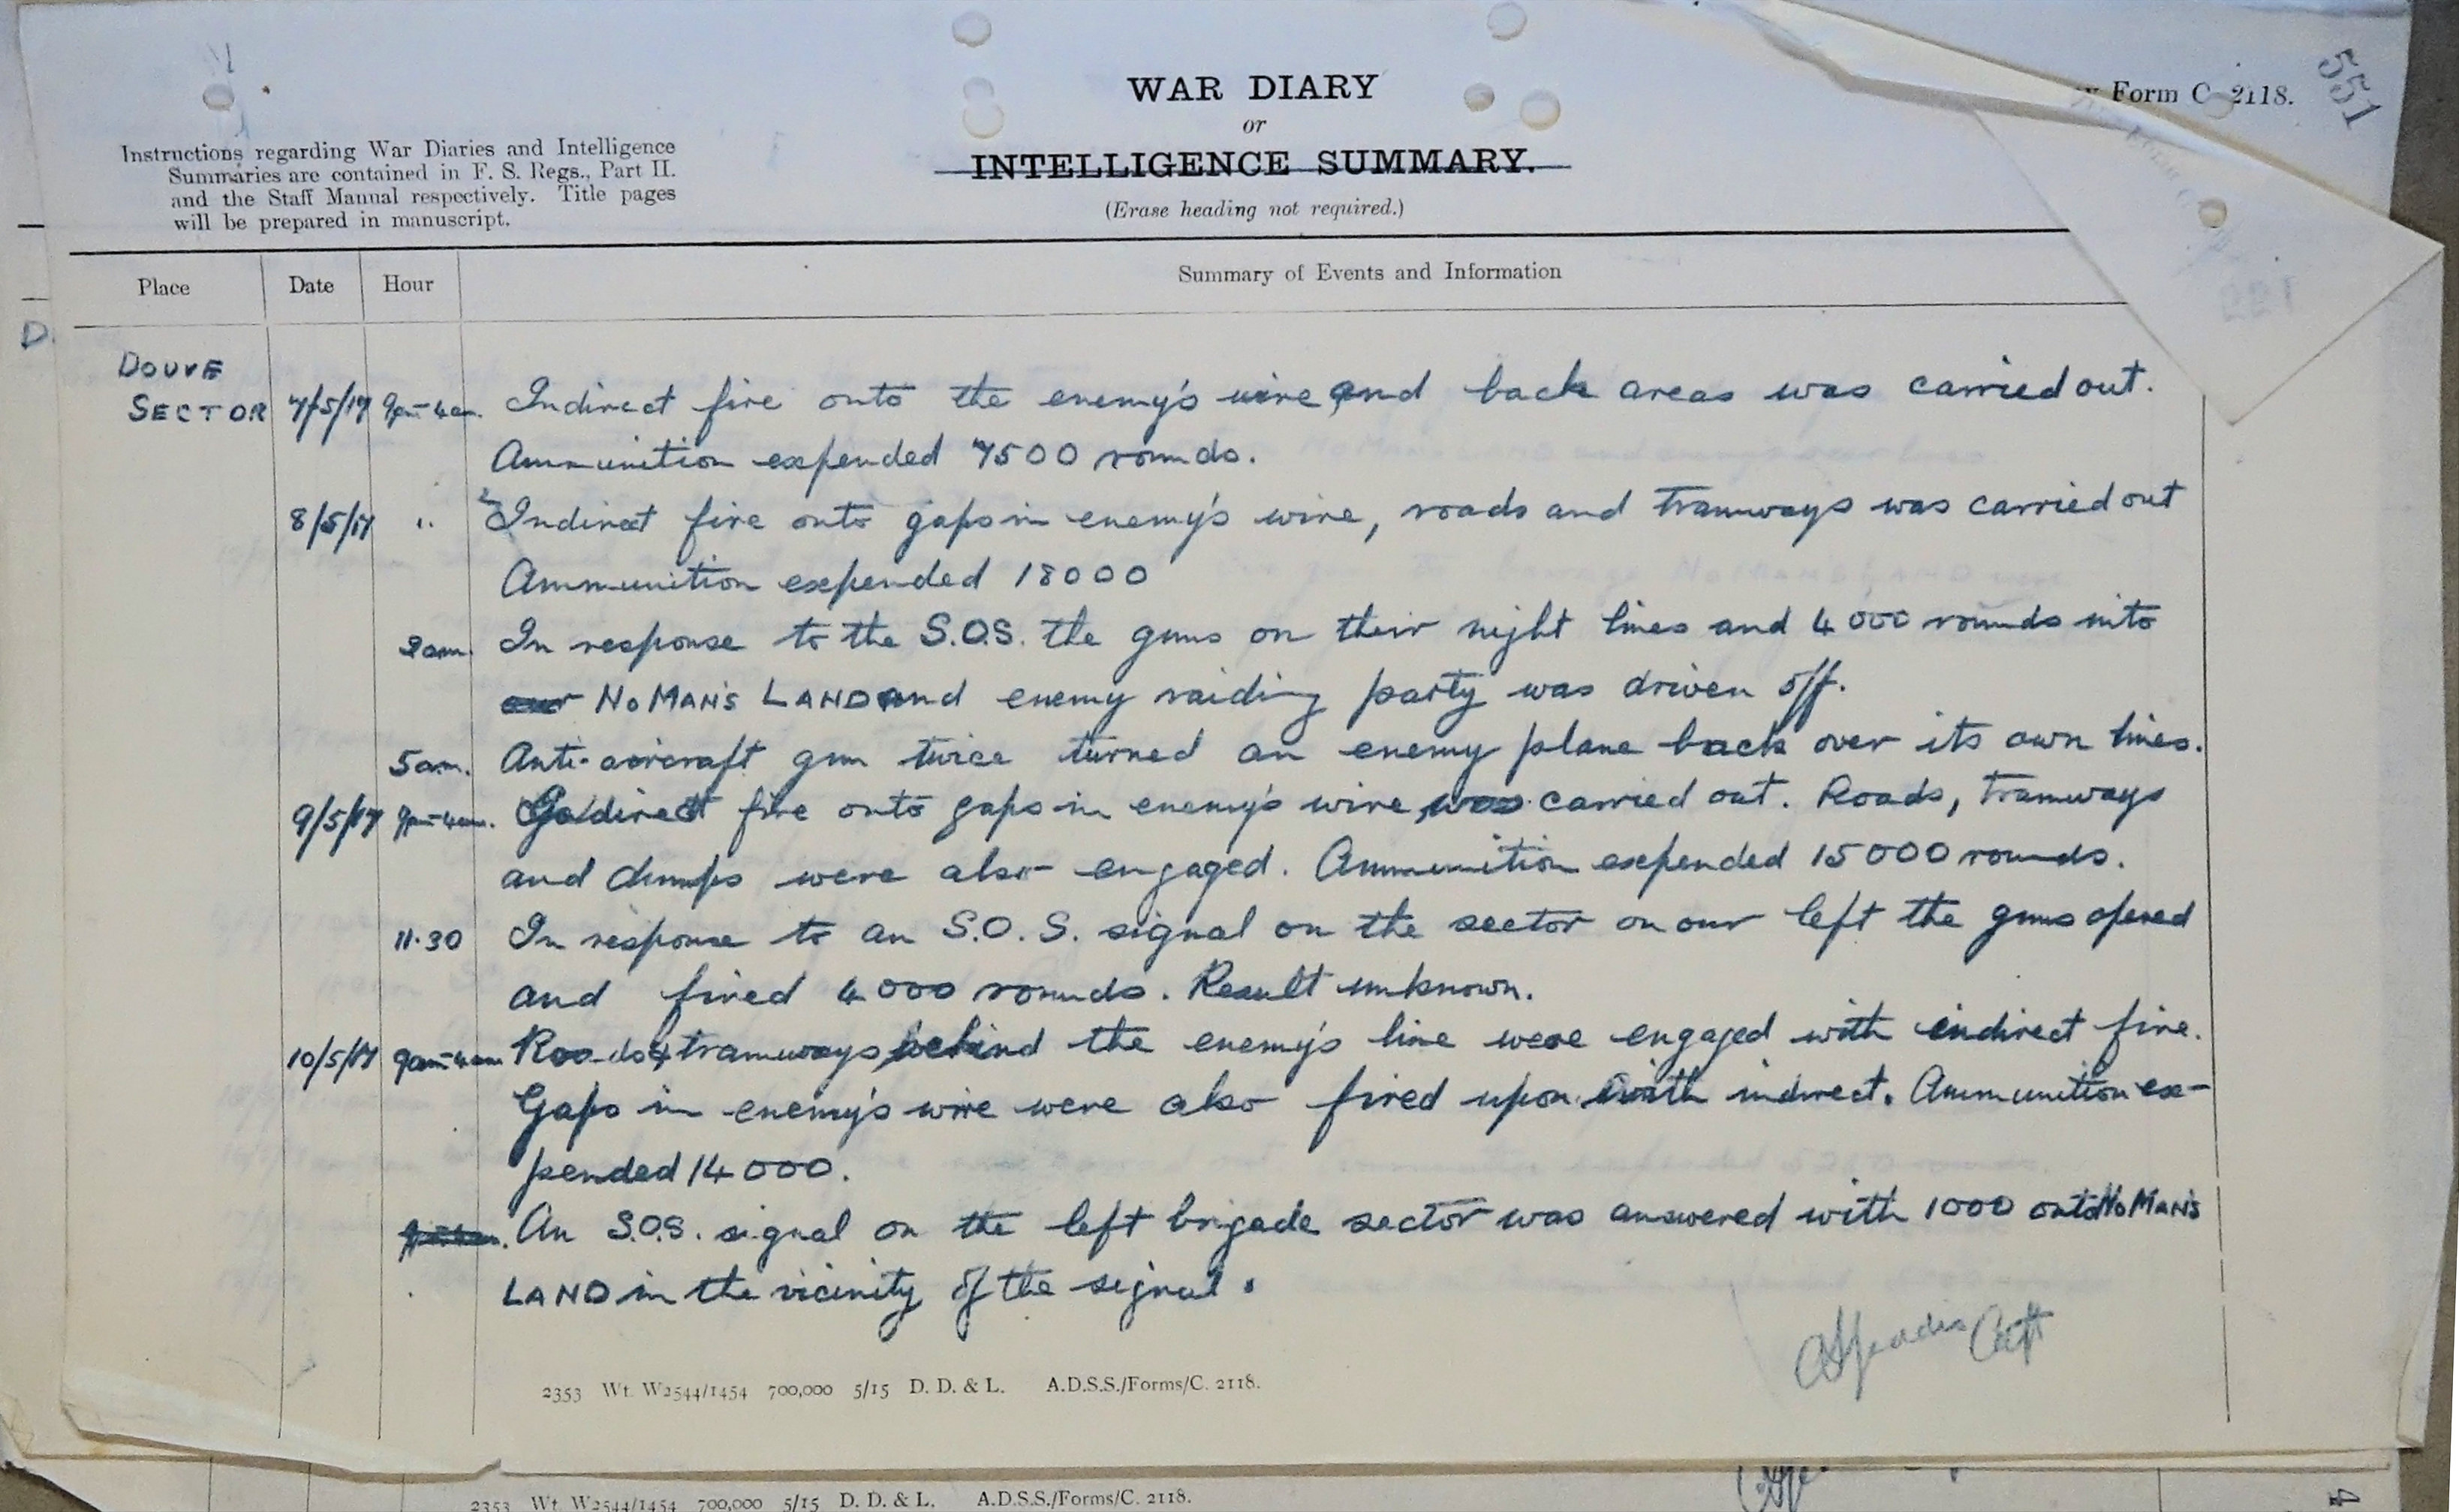 WAR DIARY
or
INTELLIGENCE SUMMARY.
(Erase heading not required.)
Form C. 2118.
551
Instructions regarding War Diaries and Intelligence
Summaries are contained in F. S. Regs., Part II.
and the Staff Manual respectively. Title pages
will be prepared in manuscript.
Place Date Hour Summary of Events and Information
D.
DOUVE
SECTOR 7/5/17 9pm-4am. Indirect fire onto the enemy's wire and back areas was carried out.
Ammunition expended 7500 rounds.
8/5/17 " Indirect fire onto gaps in enemy's wire, roads and tramways was carried out
Ammunition expended 18000
2am. In response to the S.O.S. the guns on their night lines and 4000 rounds into
our NO MAN'S LAND and enemy raiding party was driven off.
5am. Anti-aircraft gun twice turned an enemy plane back over its own lines.
9/5/17 9pm-4am. Indirect fire onto gaps in enemy's wire was carried out. Roads, tramways
and dumps were also engaged. Ammunition expended 15000 rounds.
11.30 In response to an S.O.S. signal on the sector on our left the guns opened
and fired 4000 rounds. Result unknown.
10/5/17 9pm-4am Roads & tramways behind the enemy's line were engaged with indirect fire.
Gaps in enemy's wire were also fired upon with indirect. Ammunition ex-
pended 14000.
An S.O.S. signal on the left brigade sector was answered with 1000 onto NO MAN'S
LAND in the vicinity of the signal.
Capt
2353 Wt. W2544/1454 700,000 5/15 D. D. & L. A.D.S.S./Forms/C. 2118.
2353 Wt. W2544/1454 700,000 5/15 D. D. & L. A.D.S.S./Forms/C. 2118.
4